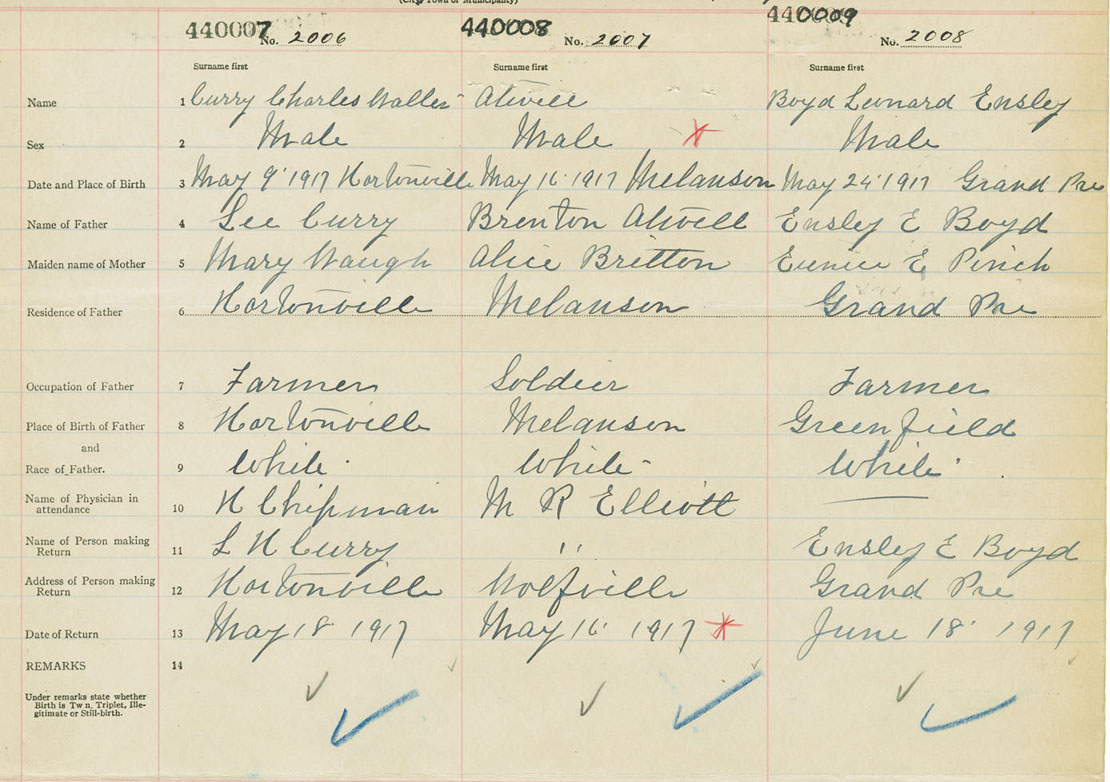 (City, Town or Municipality)
440007 440008 440009
No. 2006 No. 2007 No. 2008
Surname first Surname first Surname first
Name 1 Curry Charles Walter Atwell Boyd Leonard Ensley
Sex 2 Male Male Male
Date and Place of Birth 3 May 9 1917 Hortonville May 16 1917 Melanson May 24 1917 Grand Pre
Name of Father 4 Lee Curry Brenton Atwell Ensley E Boyd
Maiden name of Mother 5 Mary Waugh Alice Britton Eunice E Pinch
Residence of Father 6 Hortonville Melanson Grand Pre
Occupation of Father 7 Farmer Soldier Farmer
Place of Birth of Father 8 Hortonville Melanson Greenfield
and
Race of Father. 9 White White White
Name of Physician in
attendance 10 H Chipman M R Elliott
Name of Person making
Return 11 L H Curry " Ensley E Boyd
Address of Person making
Return 12 Hortonville Wolfville Grand Pre
Date of Return 13 May 18 1917 May 16 1917 June 18 1917
REMARKS 14
Under remarks state whether
Birth is Twn, Triplet, Ille-
gitimate or Still-birth.